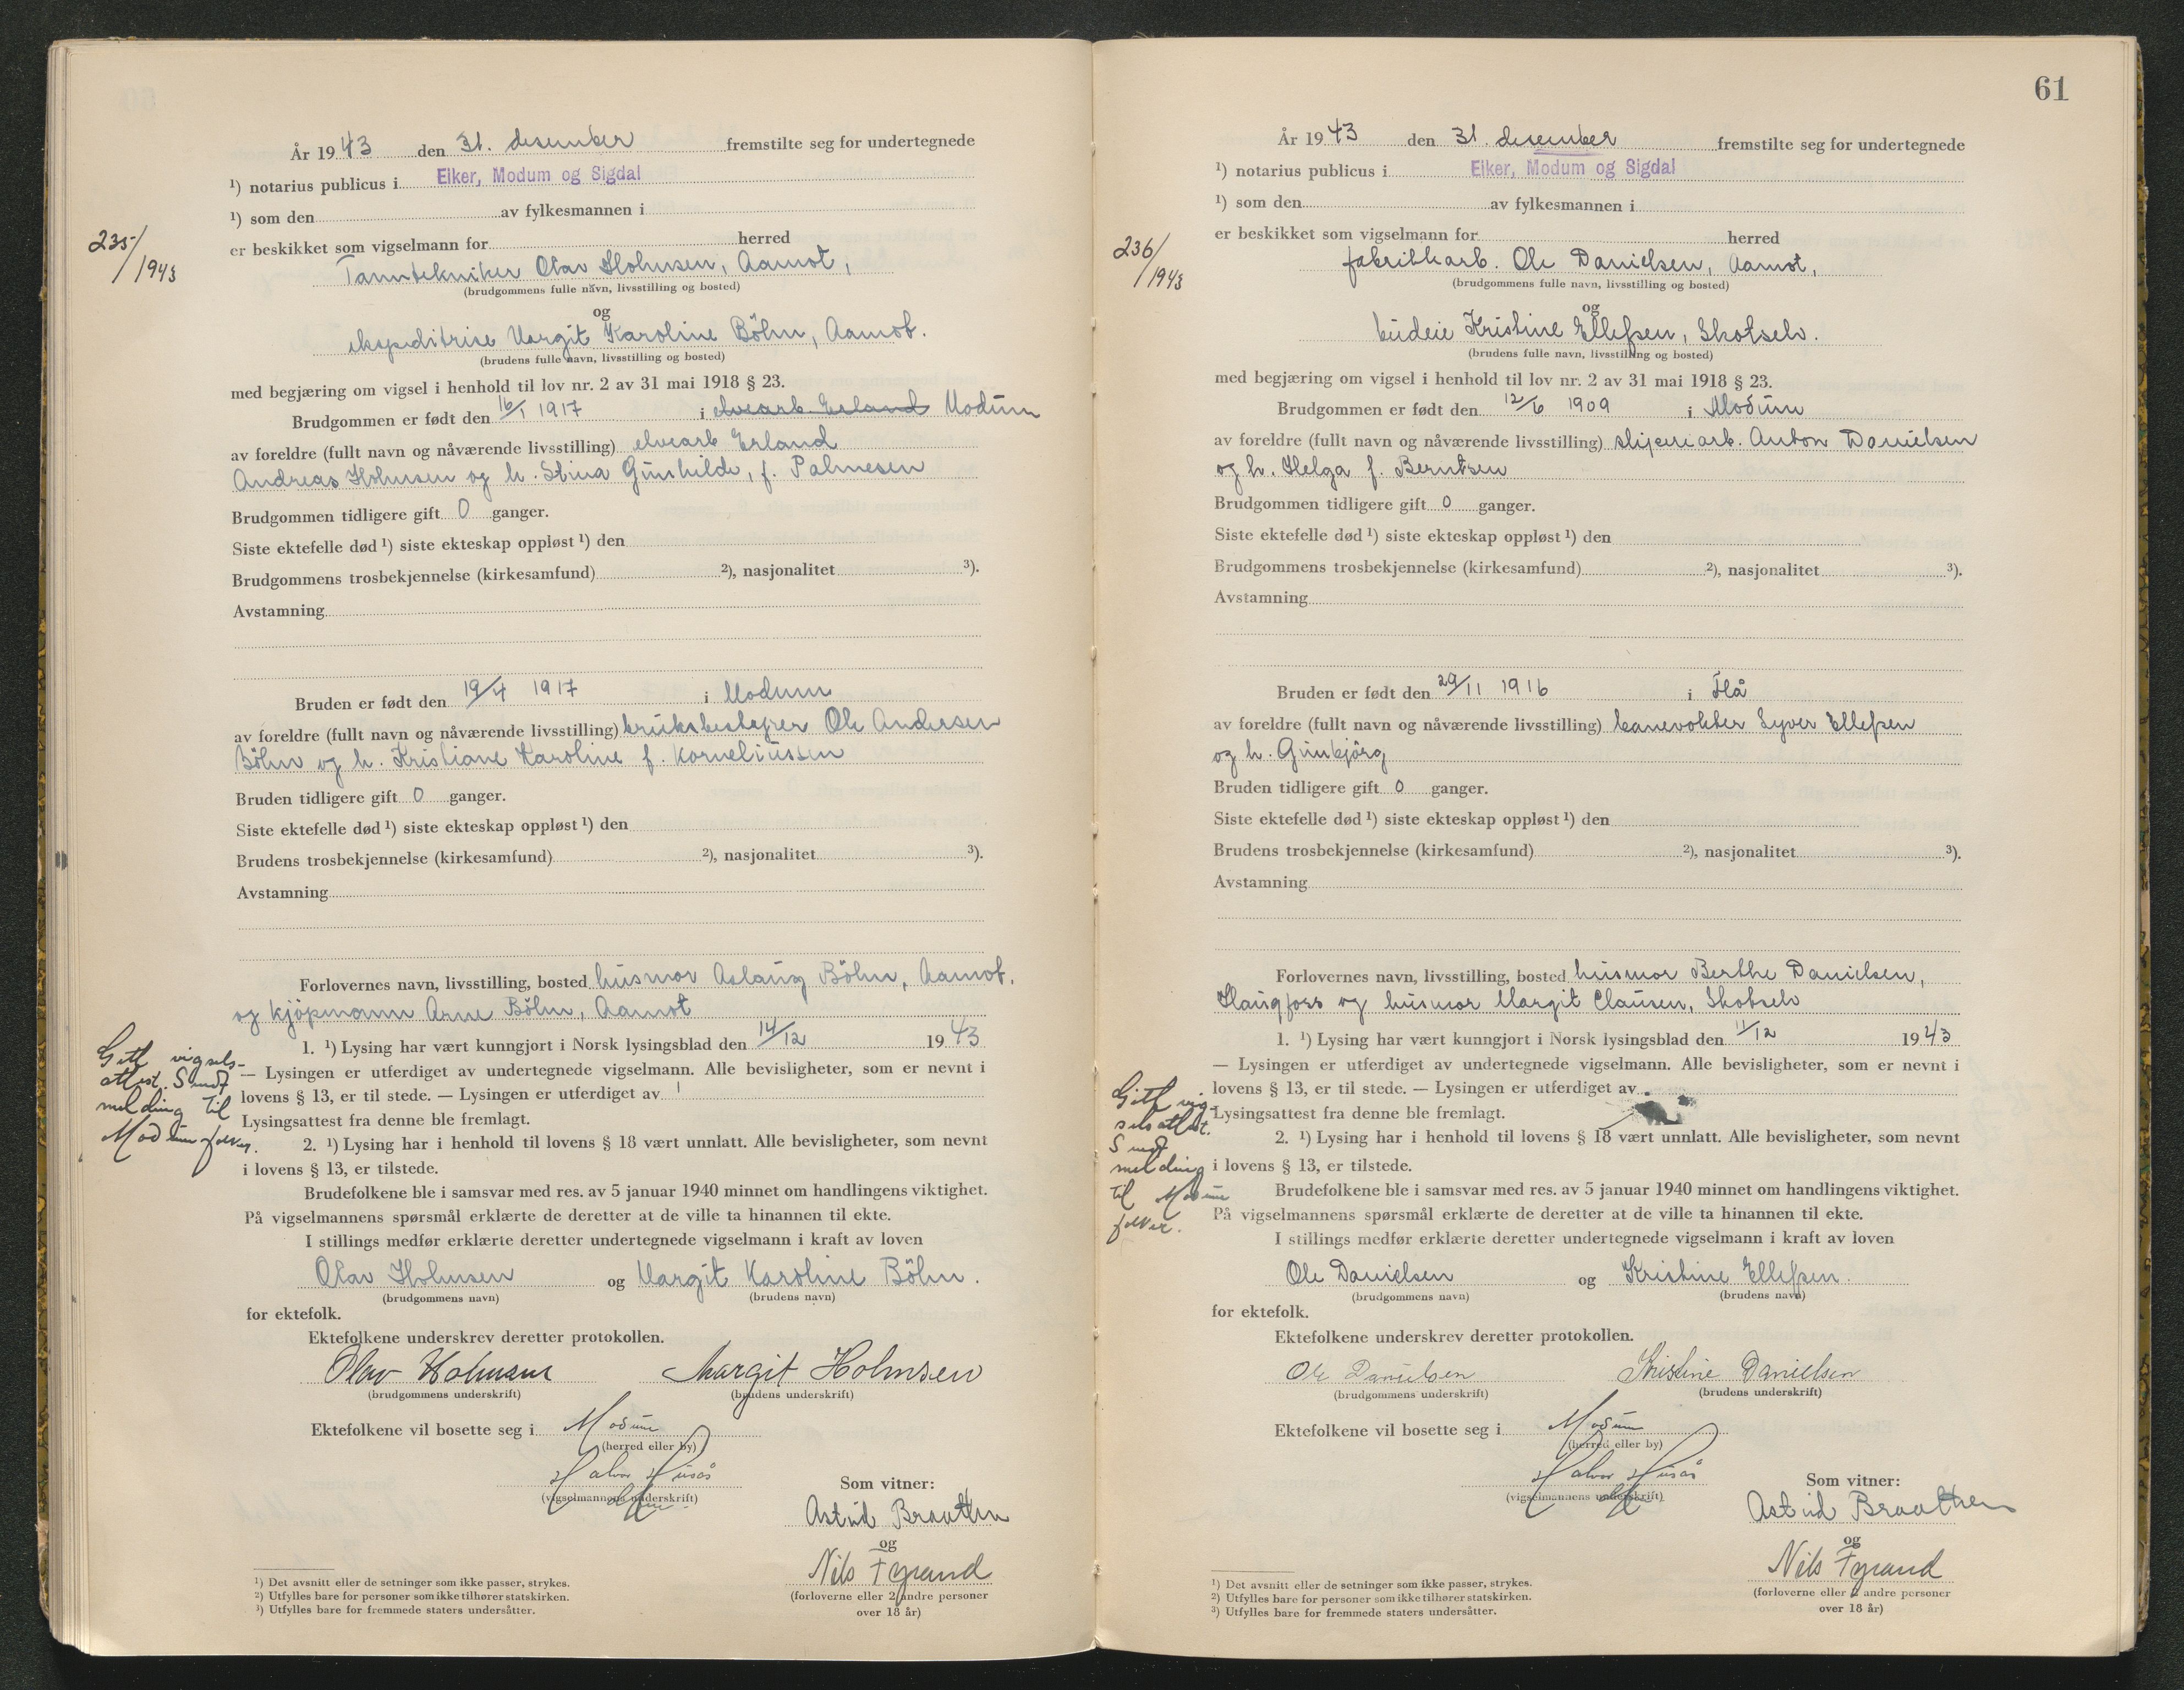 År 1943 den 31. desember fremstilte seg for undertegnede
¹) notarius publicus i Eiker, Modum og Sigdal
¹) som den av fylkesmannen i
235/1943
er beskikket som vigselmann for herred
Tanntekniker Olav Holmsen, Aamot,
(brudgommens fulle navn, livsstilling og bosted)
og
ekspeditrise Margit Karoline Böhn, Aamot.
(brudens fulle navn, livsstilling og bosted)
med begjæring om vigsel i henhold til lov nr. 2 av 31 mai 1918 § 23.
Brudgommen er født den 16/1 1917 i elvearb. Erland Modum
av foreldre (fullt navn og nåværende livsstilling) elvearb Erland
Andreas Holmsen og h. Stina Gunhilde, f. Palmesen
Brudgommen tidligere gift 0 ganger.
Siste ektefelle død ¹) siste ekteskap oppløst ¹) den
Brudgommens trosbekjennelse (kirkesamfund) ²), nasjonalitet ³).
Avstamning
Bruden er født den 19/4 1917 i Modum
av foreldre (fullt navn og nåværende livsstilling) bruksbestyrer Ole Andersen
Böhn og h. Kristiane Karoline f. Korneliussen
Bruden tidligere gift 0 ganger.
Siste ektefelle død ¹) siste ekteskap oppløst ¹) den
Brudens trosbekjennelse (kirkesamfund) ²), nasjonalitet ³).
Avstamning
Forlovernes navn, livsstilling, bosted husmor Aslaug Böhn, Aamot.
og kjöpmann Arne Böhn, Aamot
1. ¹) Lysing har vært kunngjort i Norsk lysingsblad den 14/12 1943
— Lysingen er utferdiget av undertegnede vigselmann. Alle bevisligheter, som er nevnt i
lovens § 13, er til stede. — Lysingen er utferdiget av
Lysingsattest fra denne ble fremlagt.
Gitt vigsels-
attest. Sendt
melding til
Modum folker.
2. ¹) Lysing har i henhold til lovens § 18 vært unnlatt. Alle bevisligheter, som nevnt
i lovens § 13, er tilstede.
Brudefolkene ble i samsvar med res. av 5 januar 1940 minnet om handlingens viktighet.
På vigselmannens spørsmål erklærte de deretter at de ville ta hinannen til ekte.
I stillings medfør erklærte deretter undertegnede vigselmann i kraft av loven
Olav Holmsen og Margit Karoline Böhn.
(brudgommens navn) (brudens navn)
for ektefolk.
Ektefolkene underskrev deretter protokollen.
Olav Holmsen Margit Holmsen
(brudgommens underskrift) (brudens underskrift)
Ektefolkene vil bosette seg i Modum
(herred eller by)
Halvor Husås
(vigselmannens underskrift)
Som vitner:
Astrid Braathen
og
Nils Fyrand
(forloverne eller 2 andre personer
over 18 år)
¹) Det avsnitt eller de setninger som ikke passer, strykes.
²) Utfylles bare for personer som ikke tilhører statskirken.
³) Utfylles bare for fremmede staters undersåtter.
61
År 1943 den 31. desember fremstilte seg for undertegnede
¹) notarius publicus i Eiker, Modum og Sigdal
¹) som den av fylkesmannen i
236/1943
er beskikket som vigselmann for herred
fabrikkarb. Ole Danielsen, Aamot,
(brudgommens fulle navn, livsstilling og bosted)
og
budeie Kristine Ellefsen, Skotselv.
(brudens fulle navn, livsstilling og bosted)
med begjæring om vigsel i henhold til lov nr. 2 av 31 mai 1918 § 23.
Brudgommen er født den 12/6 1909 i Modum
av foreldre (fullt navn og nåværende livsstilling) sliperiarb. Anton Danielsen
og h. Helga f. Berntsen
Brudgommen tidligere gift 0 ganger.
Siste ektefelle død ¹) siste ekteskap oppløst ¹) den
Brudgommens trosbekjennelse (kirkesamfund) ²), nasjonalitet ³).
Avstamning
Bruden er født den 29/11 1916 i Flå
av foreldre (fullt navn og nåværende livsstilling) banevokter Syver Ellefsen
og h. Gunbjörg
Bruden tidligere gift 0 ganger.
Siste ektefelle død ¹) siste ekteskap oppløst ¹) den
Brudens trosbekjennelse (kirkesamfund) ²), nasjonalitet ³).
Avstamning
Forlovernes navn, livsstilling, bosted husmor Berthe Danielsen,
Haugfoss og husmor Margit Clausen, Skotselv
1. ¹) Lysing har vært kunngjort i Norsk lysingsblad den 11/12 1943
— Lysingen er utferdiget av undertegnede vigselmann. Alle bevisligheter, som er nevnt i
lovens § 13, er til stede. — Lysingen er utferdiget av
Lysingsattest fra denne ble fremlagt.
Gitt vig-
selsattest.
Sendt
melding
til Modum
folker.
2. ¹) Lysing har i henhold til lovens § 18 vært unnlatt. Alle bevisligheter, som nevnt
i lovens § 13, er tilstede.
Brudefolkene ble i samsvar med res. av 5 januar 1940 minnet om handlingens viktighet.
På vigselmannens spørsmål erklærte de deretter at de ville ta hinannen til ekte.
I stillings medfør erklærte deretter undertegnede vigselmann i kraft av loven
Ole Danielsen og Kristine Ellefsen.
(brudgommens navn) (brudens navn)
for ektefolk.
Ektefolkene underskrev deretter protokollen.
Ole Danielsen Kristine Danielsen
(brudgommens underskrift) (brudens underskrift)
Ektefolkene vil bosette seg i Modum
(herred eller by)
Halvor Husås
(vigselmannens underskrift)
Som vitner:
Astrid Braathen
og
Nils Fyrand
(forloverne eller 2 andre personer
over 18 år)
¹) Det avsnitt eller de setninger som ikke passer, strykes.
²) Utfylles bare for personer som ikke tilhører statskirken.
³) Utfylles bare for fremmede staters undersåtter.